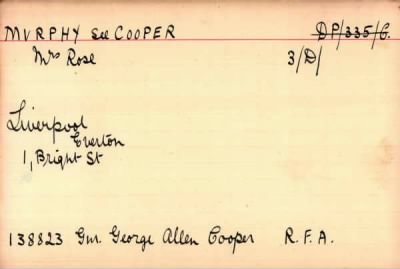 MURPHY see COOPER DP/335/C.
Mrs Rose 3/D/
Liverpool
Everton
1, Bright St
138823 Gnr. George Allen Cooper R.F.A.